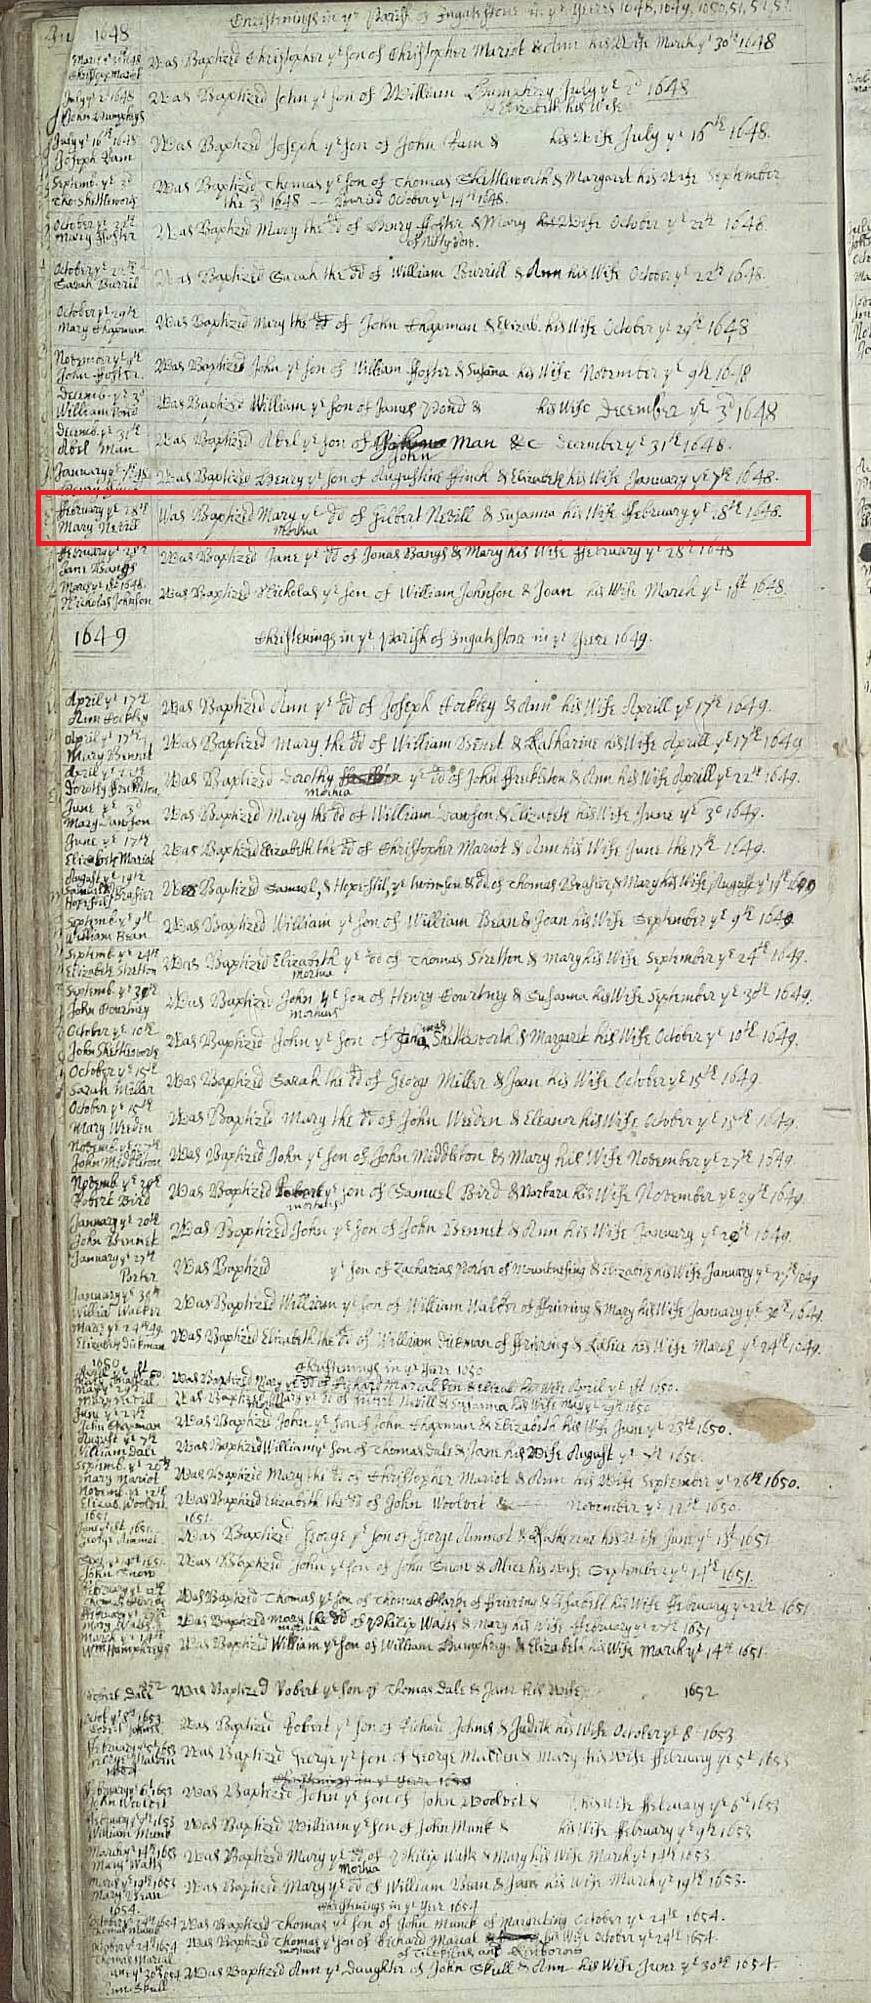 Christenings in ye Parish of Ingatestone in ye Yeers 1648, 1649, 1650, 51, 52, 53
1648
Christop Mariot
Was Baptized Christopher ye son of Christopher Mariot & Ann his Wife March ye 30th 1648
July ye 2d 1648
John Humphrys
Was Baptized John ye son of William Humphry July ye 2d 1648
& Elizabeth his Wife
July ye 16th 1648
Joseph Ram
Was Baptized Joseph ye son of John Ram & his Wife July ye 16th 1648.
Septemb. ye 3d
Tho: Shettleworth
Was Baptized Thomas ye son of Thomas Shettleworth & Margaret his Wife September
the 3d 1648 -- Buried October ye 14th 1648.
October ye 22th
Mary ffoster
Was Baptized Mary the dd of Henry ffoster & Mary his Wife October ye 22th 1648.
October ye 22th
Sarah Burril
Was Baptized Sarah the dd of William Burrill & Ann his Wife October ye 22th 1648.
October ye 29th
Mary Chapman
Was Baptized Mary the dd of John Chapman & Elizab. his Wife October ye 29th 1648
November ye 9th
John ffoster
Was Baptized John ye son of William ffoster & Susana his Wife November ye 9th 1648
Decemb. ye 3d
William Pond
Was Baptized William ye son of James Pond & his Wife December ye 3d 1648
Decemb. ye 31th
Abel Man
Was Baptized Abel ye son of Man &c December ye 31th 1648.
John
January ye 7th 48
Was Baptized Henry ye son of Augustine ffinch & Elizabeth his Wife January ye 7th 1648.
ffebruary ye 18th
Mary Nevill
Was Baptized Mary ye dd of Gilbert Nevill & Susanna his Wife ffebruary ye 18th 1648.
Mortua
ffebruary ye 28th
Jane Bangs
Was Baptized Jane ye dd of Jonas Bangs & Mary his Wife ffebruary ye 28th 1648
March ye 18t 1648
Nicholas Johnson
Was Baptized Nicholas ye son of William Johnson & Joan his Wife March ye 18t 1648.
1649
Christenings in ye Parish of Ingatestone in ye Yeere 1649.
April ye 17th
Ann Hockley
Was Baptized Ann ye dd of Joseph Hockley & Ann his Wife Aprill ye 17th 1649.
April ye 17th
Mary Bennet
Was Baptized Mary the dd of William Benet & Katharine his Wife Aprill ye 17th 1649
April ye 22th
Was Baptized Dorothy ye dd of John & Ann his Wife Aprill ye 22th 1649.
Mortua
June ye 3d
Mary Dawson
Was Baptized Mary the dd of William Dawson & Elizabeth his Wife June ye 3d 1649.
June ye 17th
Elizabeth Mariot
Was Baptized Elizabeth the dd of Christopher Mariot & Ann his Wife June the 17th 1649.
August ye 19th
Samuel & Hopestil Brasier
Was Baptized Samuel, & Hopestil, ye twin son & dd of Thomas Brasier & Mary his Wife August ye 19th 1649
Septemb ye 9th
William Bean
Was Baptized William ye son of William Bean & Joan his Wife September ye 9th 1649
Septemb. ye 24th
Elizabeth Stretton
Was Baptized Elizabeth ye dd of Thomas Stretton & Mary his Wife September ye 24th 1649.
Mortua
Septemb. ye 30th
John Courtney
Was Baptized John ye son of Henry Courtney & Susanna his Wife September ye 30th 1649.
Mortuus
October ye 10th
John Shettleworth
Was Baptized John ye son of Shettleworth & Margaret his Wife October ye 10th 1649.
October ye 15th
Sarah Miller
Was Baptized Sarah the dd of George Miller & Joan his Wife October ye 15th 1649.
October ye 15th
Mary Weeden
Was Baptized Mary the dd of John Weeden & Eleanor his Wife October ye 15th 1649.
Novemb. ye 27th
John Middleton
Was Baptized John ye son of John Middleton & Mary his Wife November ye 27th 1649
Novemb. ye 29th
Robert Bird
Was Baptized Robert ye son of Samuel Bird & Barbara his Wife November ye 29th 1649.
Mortuus
January ye 20th
John Bennet
Was Baptized John ye son of John Bennet & Ann his Wife January ye 20th 1649.
January ye 27th
Porter
Was Baptized ye son of Zacharias Porter of Mountnesing & Elizabeth his Wife January ye 27th 1649
January ye 30th
Was Baptized William ye son of William Walker of ffriering & Mary his Wife January ye 30th 1649
March ye 24th 49
Elizabeth Dickman
Was Baptized Elizabeth the dd of William Dickman of ffriering & his Wife March ye 24th 1649.
1650
Christenings in ye Yeer 1650
Was Baptized Mary ye dd of Richard Marcial & his Wife April ye 1st 1650.
Was Baptized Mary ye dd of Nevill & Susanna his Wife May ye 29th 1650
June ye 23th
John Chapman
Was Baptized John ye son of John Chapman & Elizabeth his Wife June ye 23th 1650.
August ye 7th
William Dale
Was Baptized William ye son of Thomas Dale & Jane his Wife August ye 7th 1650.
Septemb. ye 26th
Mary Mariot
Was Baptized Mary the dd of Christopher Mariot & Ann his Wife September ye 26th 1650.
Novemb. ye 12th
Elizab. Woolvet
Was Baptized Elizabeth the dd of John Woolvet & November ye 12th 1650.
1651
1651.
Was Baptized George ye son of George & Katherine his Wife June ye 1st 1651
John Snow
Was Baptized John ye son of John Snow & Alice his Wife September ye 14th 1651.
ffebruary ye 22th
Was Baptized Thomas ye son of Thomas of ffriering & his Wife ffebruary ye 22th 1651
Mary Watts
Was Baptized Mary the dd of Philip Watts & Mary his Wife ffebruary ye 1651
Mortua
March ye 14th
Wm Humphreys
Was Baptized William ye son of William Humphry & Elizabeth his Wife March ye 14th 1651.
1652
Robert Dale
Was Baptized Robert ye son of Thomas Dale & Jane his Wife 1652
Octob ye 8th 1653
Was Baptized Robert ye son of Richard Johns & Judith his Wife October ye 8 1653
ffebruary ye 5t 1653
Was Baptized George ye son of George & Mary his Wife ffebruary ye 5t 1653
ffebruary ye 6t 1653
John Woolvet
Was Baptized John ye son of John Woolvet & his Wife ffebruary ye 6t 1653
ffebruary ye 9th 1653
William Munk
Was Baptized William ye son of John Munk & his Wife ffebruary ye 9th 1653
March ye 14th 1653
Mary Watts
Was Baptized Mary ye dd of Philip Watts & Mary his Wife March ye 14th 1653
Mortua
March ye 19th 1653
Mary Bean
Was Baptized Mary ye dd of William Bean & Jane his Wife March ye 19th 1653.
1654.
Christenings in ye Yeer 1654
October ye 24th 1654
Thomas Munk
Was Baptized Thomas ye son of John Munk of Margreting October ye 24th 1654.
October ye 24th 1654
Thomas Marcial
Was Baptized Thomas ye son of Richard Marcial his Wife October ye 24th 1654.
Mortuus
June ye 30th 1654
Ann Skull
Was Baptized Ann ye Daughter of John Skull & Ann his Wife June ye 30th 1654.